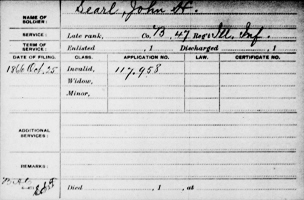 NAME OF SOLDIER: Searl, John H.
SERVICE: Late rank, Co. B, 47 Reg't Ill. Inf.
TERM OF SERVICE: Enlisted , 1 Discharged , 1
DATE OF FILING. CLASS. APPLICATION NO. LAW. CERTIFICATE NO.
1866 Oct. 25 Invalid, 117.958
Widow,
Minor,
ADDITIONAL SERVICES:
REMARKS:
Died , 1 , at